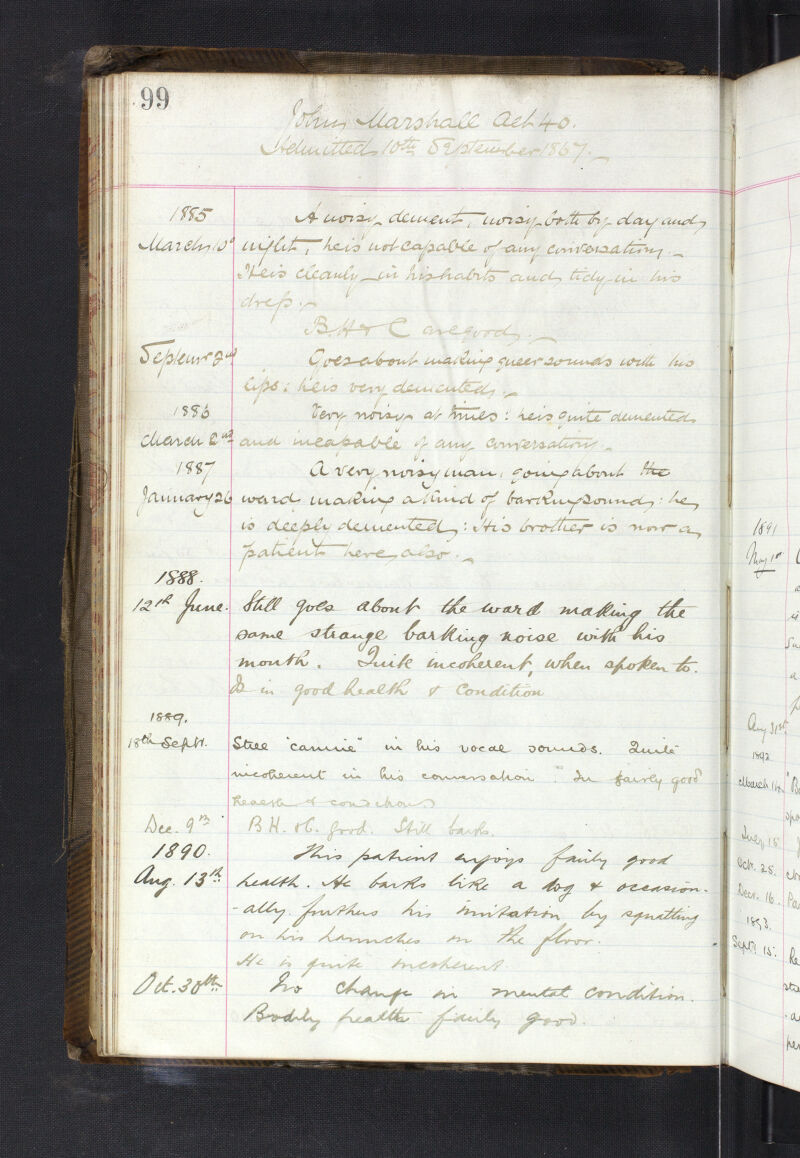 99
John Marshall Aet 40.
Admitted 10th September 1867.
1885
A noisy dement, noisy both by day and
March 10th night, he is not capable of any conversation.
He is cleanly in his habits and tidy in his
dress.
B.H & C are good.
Septemr 2nd Goes about making queer sounds with his
lips: he is very demented.
1886 Very noisy at times: he is quite demented
March 2nd and incapable of any conversation.
1887 A very noisy man, going about the
January 26 ward making a kind of barking sound: he
is deeply demented: His brother is now a
patient here also.
1888.
12th June. Still goes about the ward making the
same strange barking noise with his
mouth. Quite incoherent, when spoken to.
Is in good health & condition
1889.
18th Sept. Still "canine" in his vocal sounds. Quite
incoherent in his conversation. In fairly good
health & condition
Dec. 9th B.H. & C. good. Still barks.
1890. This patient enjoys fairly good
Aug. 13th health. He barks like a dog & occasion-
-ally furthers his imitation by squatting
on his haunches on the floor.
He is quite incoherent
Oct. 30th No change in mental condition.
Bodily health fairly good.
1891
May 1st
Aug 31st
1892
March 14
July 15
Oct. 25.
Decr. 16.
1893.
Sept. 15.